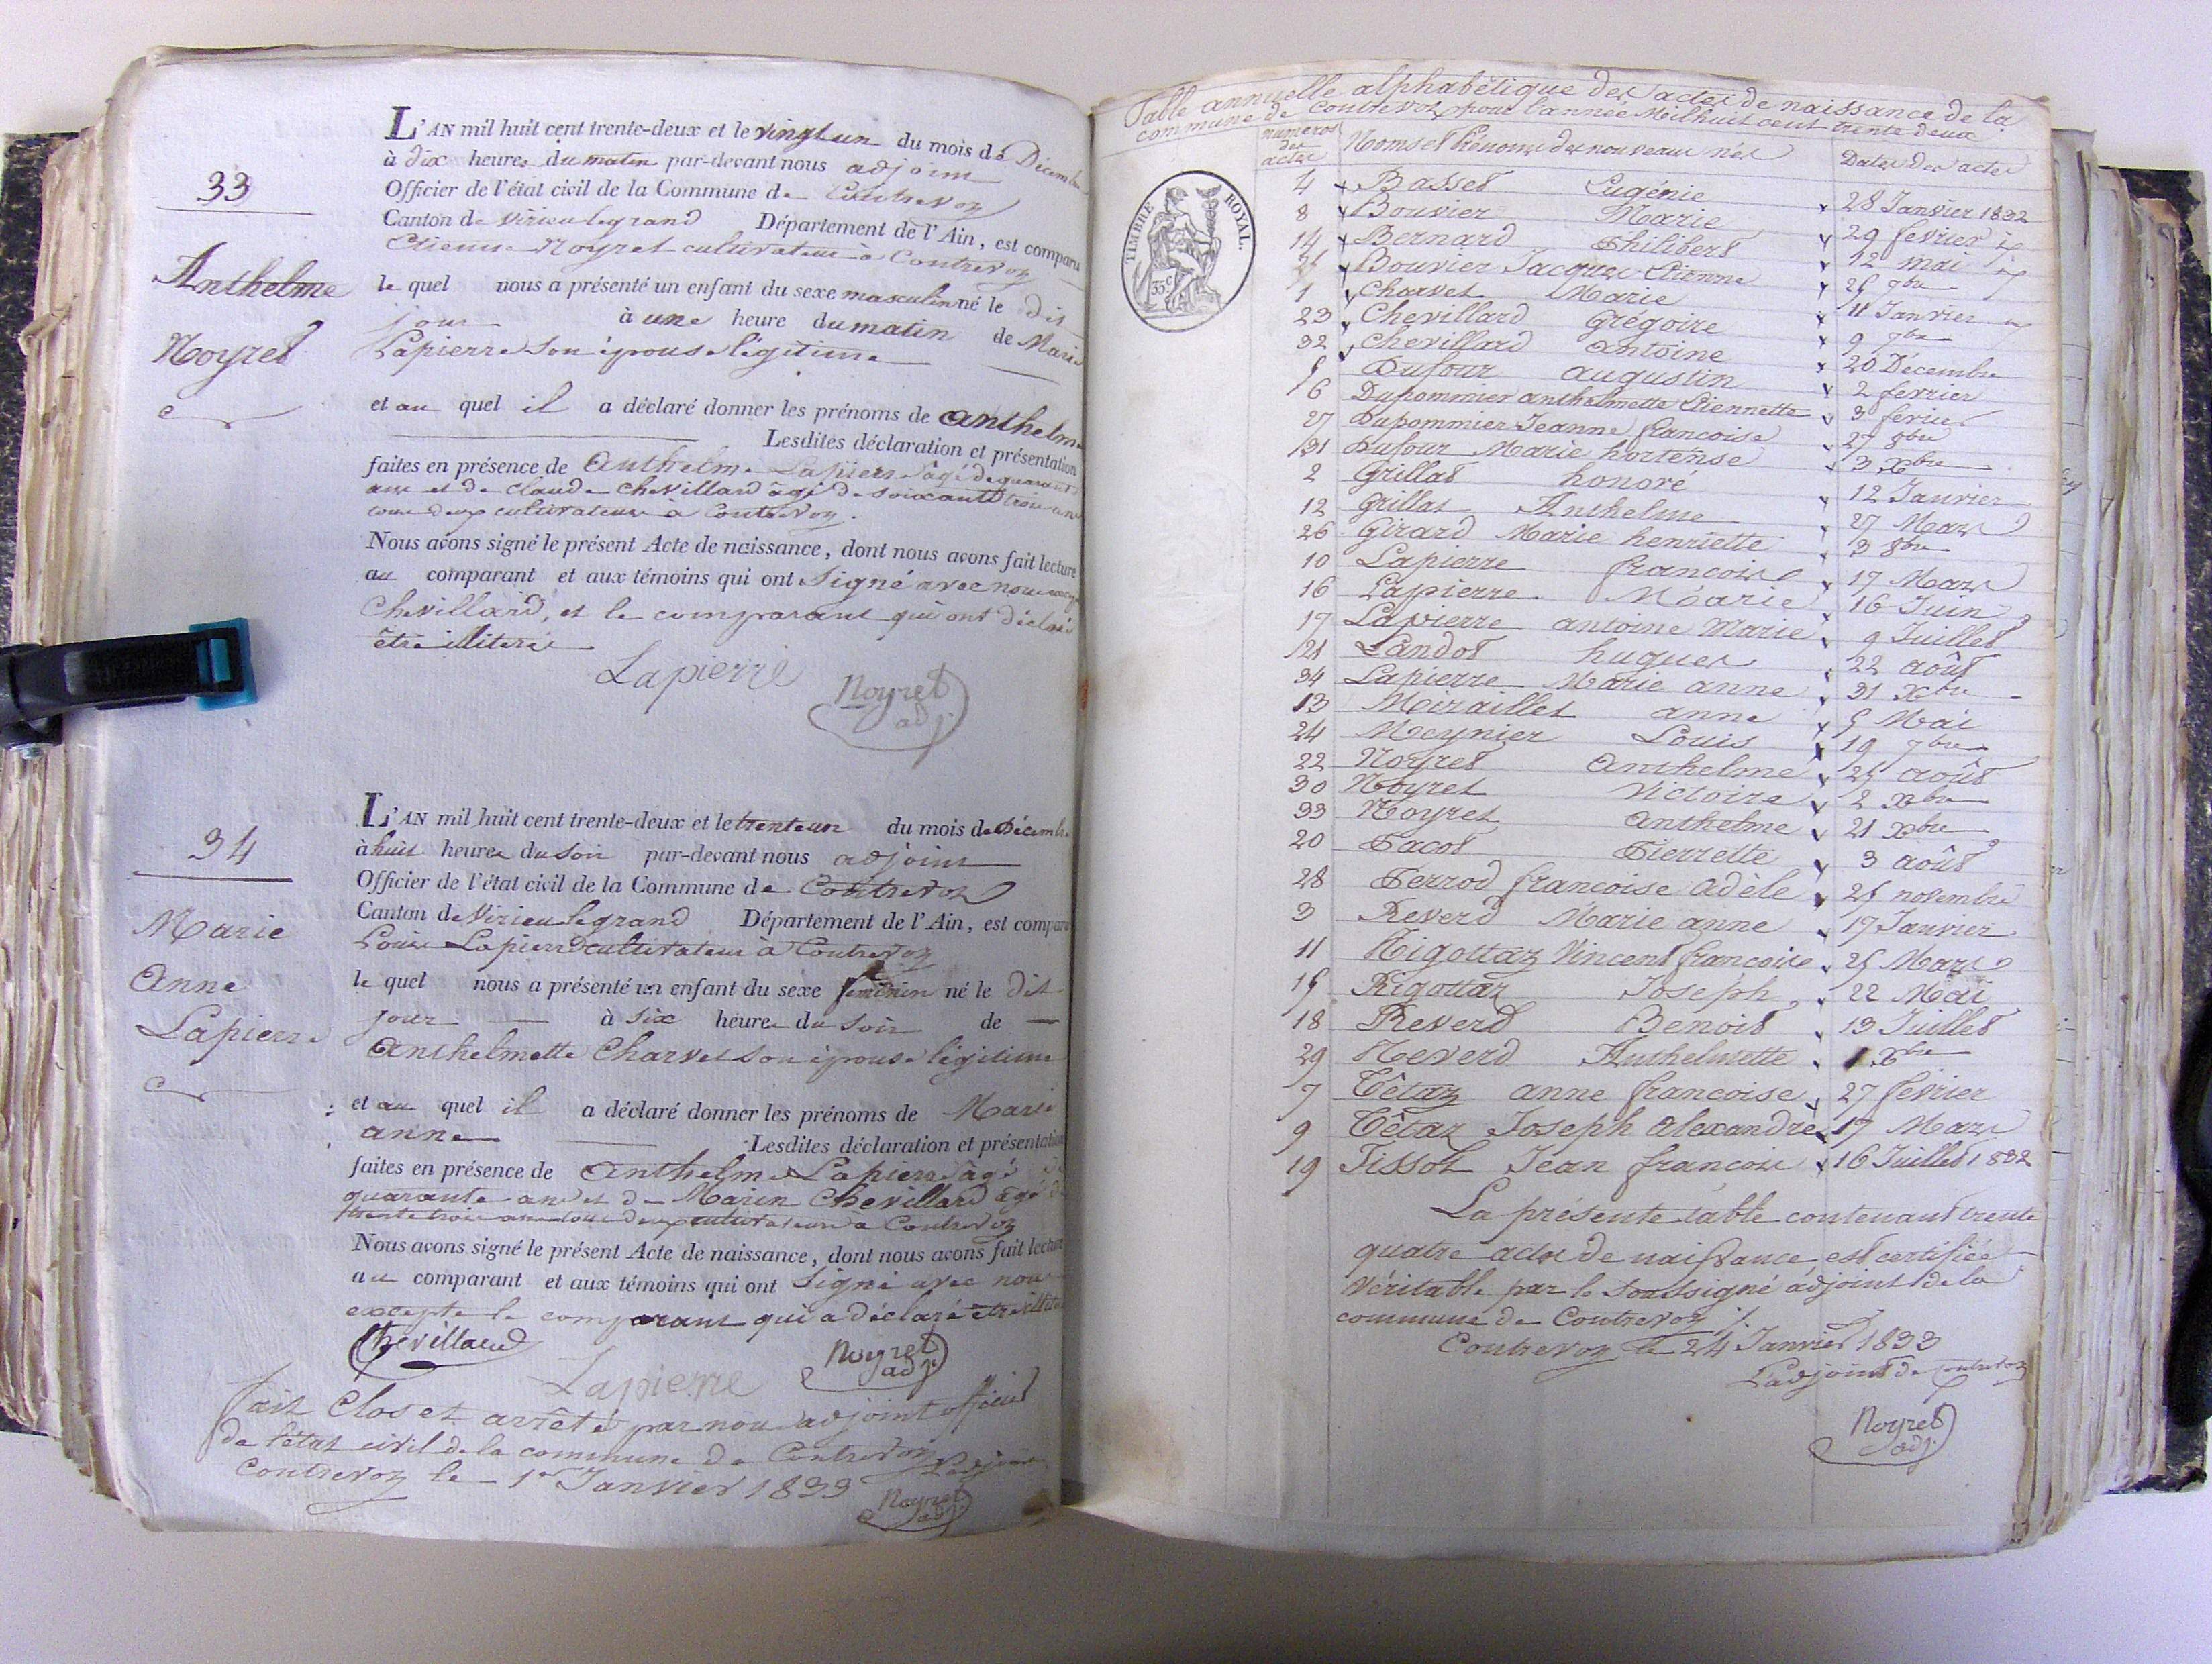 33
Anthelme
Noyret
L'AN mil huit cent trente-deux et le vingt un du mois de Décembre
à dix heures du matin par-devant nous adjoint
Officier de l'état civil de la Commune de Contrevoz
Canton de Virieu legrand Département de l'Ain, est comparu
Etienne Noyret cultivateur à Contrevoz
le quel nous a présenté un enfant du sexe masculin né le dit
jour à une heure du matin de Marie
Lapierre son épouse légitime
et au quel il a déclaré donner les prénoms de anthelme
Lesdites déclaration et présentation
faites en présence de Anthelme Lapierre âgé de quarante
ans et de claude chevillard âgé de soixante trois ans
tous deux cultivateurs à Contrevoz.
Nous avons signé le présent Acte de naissance, dont nous avons fait lecture
au comparant et aux témoins qui ont signé avec nous
Chevillard, et le comparant qui ont déclaré
être illiteré
Lapierre
Noyret
adj.
34
Marie
Anne
Lapierre
L'AN mil huit cent trente-deux et le trente un du mois de Décembre
à huit heures du soir par-devant nous adjoint
Officier de l'état civil de la Commune de Contrevoz
Canton de Virieu legrand Département de l'Ain, est comparu
Louis Lapierre cultivateur à Contrevoz
le quel nous a présenté un enfant du sexe féminin né le dit
jour à six heures du soir de
Anthelmette Charvet son épouse légitime
et au quel il a déclaré donner les prénoms de Marie
anne Lesdites déclaration et présentation
faites en présence de Anthelme Lapierre âgé de
quarante ans et de Marin Chevillard âgé de
trente trois ans tous deux cultivateurs à Contrevoz
Nous avons signé le présent Acte de naissance, dont nous avons fait lecture
au comparant et aux témoins qui ont signé avec nous
excepté le comparant qui a déclaré être illiteré
Chevillard Noyret
adj.
Lapierre
fait Clos et arrêté par nous adjoint officier
de l'état civil de la commune de Contrevoz
Contrevoz le 1er Janvier 1833 L'adjoint
Noyret
adj.
Table annuelle alphabétique des actes de naissance de la
commune de Contrevoz pour l'année Mil huit cent trente deux
numeros des actes Noms et Prénoms des nouveaux nés Dates des actes
TIMBRE ROYAL.
35 c
4 Basset Eugénie 28 Janvier 1832
8 Bouvier Marie 29 fevrier
14 Bernard Philibert 12 mai
Bouvier Jacques Etienne 7bre
1 Charvet Marie 11 Janvier
23 Chevillard Grégoire 9 7bre
32 Chevillard antoine 20 Décembre
5 Dufour augustin 2 fevrier
6 Dupommier anthelmette Etiennette 3 fevrier
27 Dupommier Jeanne francoise 27 8bre
31 Dufour Marie hortense 3 Xbre
2 Grillat honoré 12 Janvier
12 Grillat Anthelme 27 Mars
26 Girard Marie henriette 3 8bre
10 Lapierre francoise 17 Mars
16 Lapierre Marie 16 Juin
17 Lapierre antoine Marie 9 Juillet
21 Landot hugues 22 août
34 Lapierre Marie anne 31 Xbre
13 Miraillet anne 5 Mai
24 Meynier Louis 19 7bre
22 Noyret Anthelme 25 août
30 Noyret Victoire 2 Xbre
33 Noyret Anthelme 21 Xbre
20 Pacot Pierrette 3 août
28 Perrod francoise Adèle 25 novembre
3 Reverd Marie anne 17 Janvier
11 Rigottaz Vincent francois 25 Mars
15 Rigottaz Joseph 22 Mai
18 Reverd Benoit 13 Juillet
29 Reverd Anthelmette 1 Xbre
7 Têtaz anne francoise 27 fevrier
9 Têtaz Joseph Alexandre 17 Mars
19 Tissot Jean francois 16 Juillet 1832
La présente table contenant trente
quatre actes de naissance, est certifiée
véritable par le soussigné adjoint de la
commune de Contrevoz
Contrevoz le 24 Janvier 1833
L'adjoint de Contrevoz
Noyret
adj.